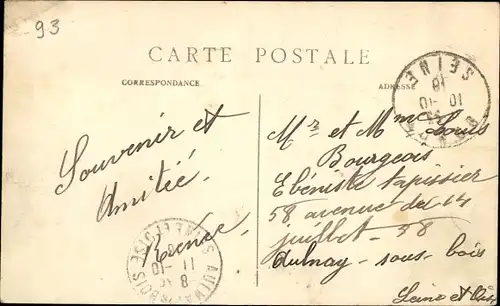 93
CARTE POSTALE
CORRESPONDANCE
ADRESSE
SEINE
18
10-10
Souvenir et
Amitié.
Renée
Mr et Mme Louis
Bourgeois
Ebéniste tapissier
58 avenue du 14
juillet - 58
Aulnay - sous - bois
Seine et Oise
AULNAY
BOIS
11-10
8